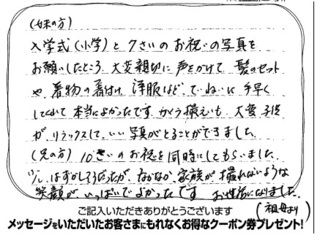 (妹の方)
入学式(小学)と7さいのお祝いの写真を
お願いしたところ、大変親切に声をかけて、髪のセット
や、着物の着付け、洋服など、ていねいに手早く
してくれて本当によかったです。カメラ撮えいも、大変子供
がリラックスして、いい写真がとることができました。
(兄の方) 10さいのお祝を同時にしてもらいました。
少しはずかしそうだったが、なかなか家族が撮れないような
笑顔がいっぱいでよかったです お世話になりました。
(祖母より)
ご記入いただきありがとうございます
メッセージをいただいたお客さまにもれなくお得なクーポン券プレゼント!